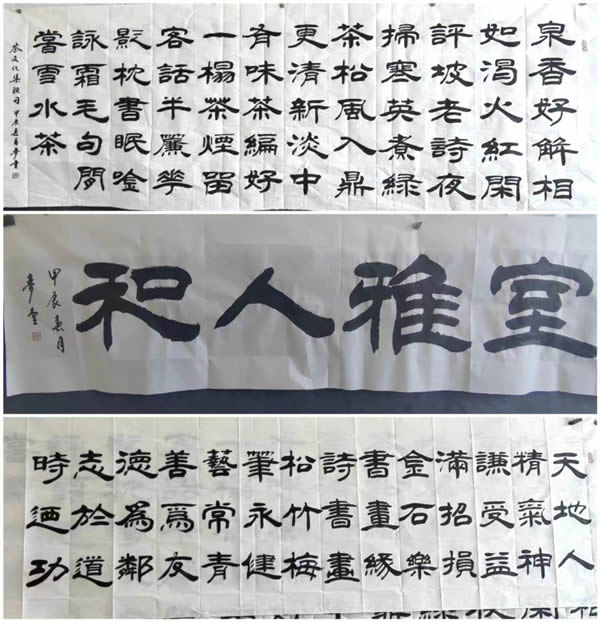 泉香好解相
如渴火紅閑
評坡老詩夜
掃寒英煮綠
茶松風入鼎
更清新淡中
有味茶編好
一榻茶煙留
客話半簾華
影枕書眠唫
詠霜毛句閒
嘗雪水茶
茶文化集联句 甲辰春月
室雅人和
甲辰春月
天地人
精氣神
謙受益
滿招損
金石樂
書畫緣
詩書畫
松竹梅
筆永健
藝常青
善爲友
德爲鄰
志於道
時迺功